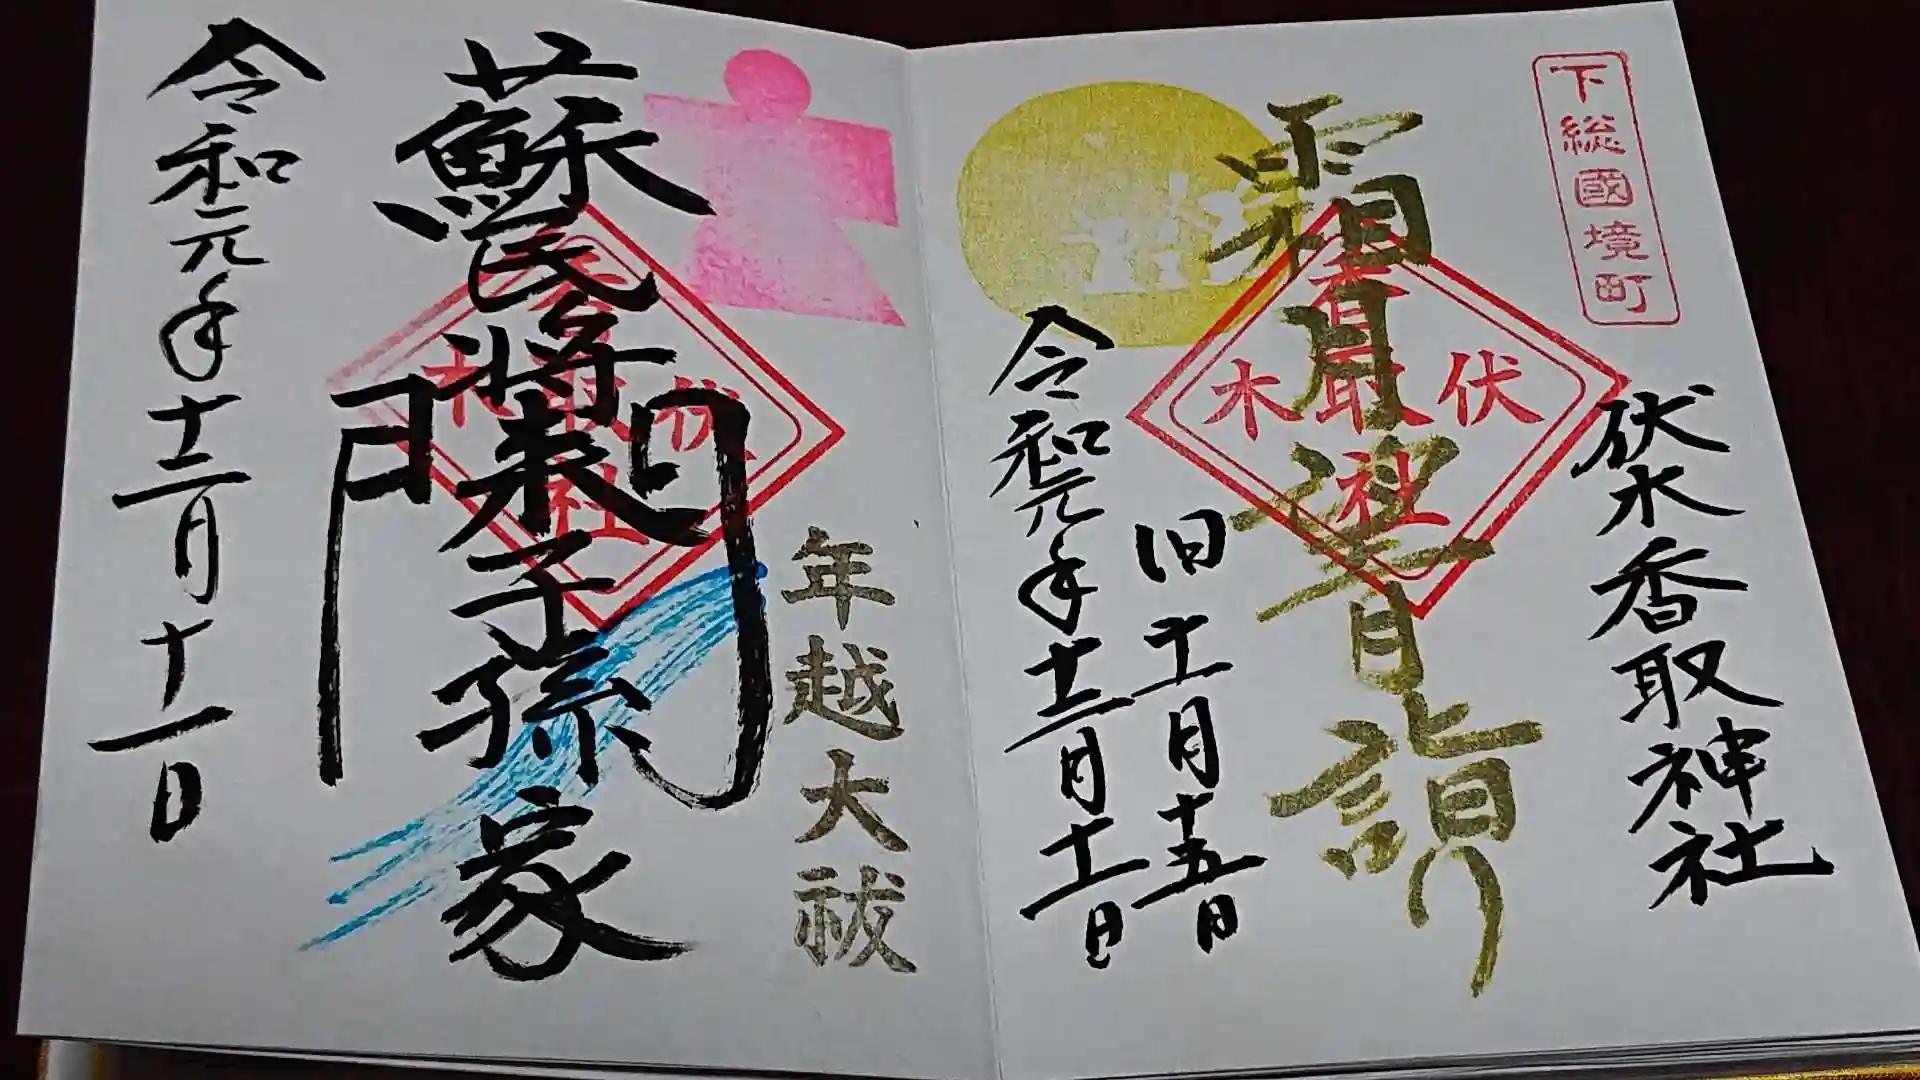 下総國境町
伏木香取神社
霜月
詣
伏木香取社
旧十一月十五日
令和元年十二月十一日
年越大祓
蘇民将来子孫家門
伏木香取社
令和元年十二月十一日